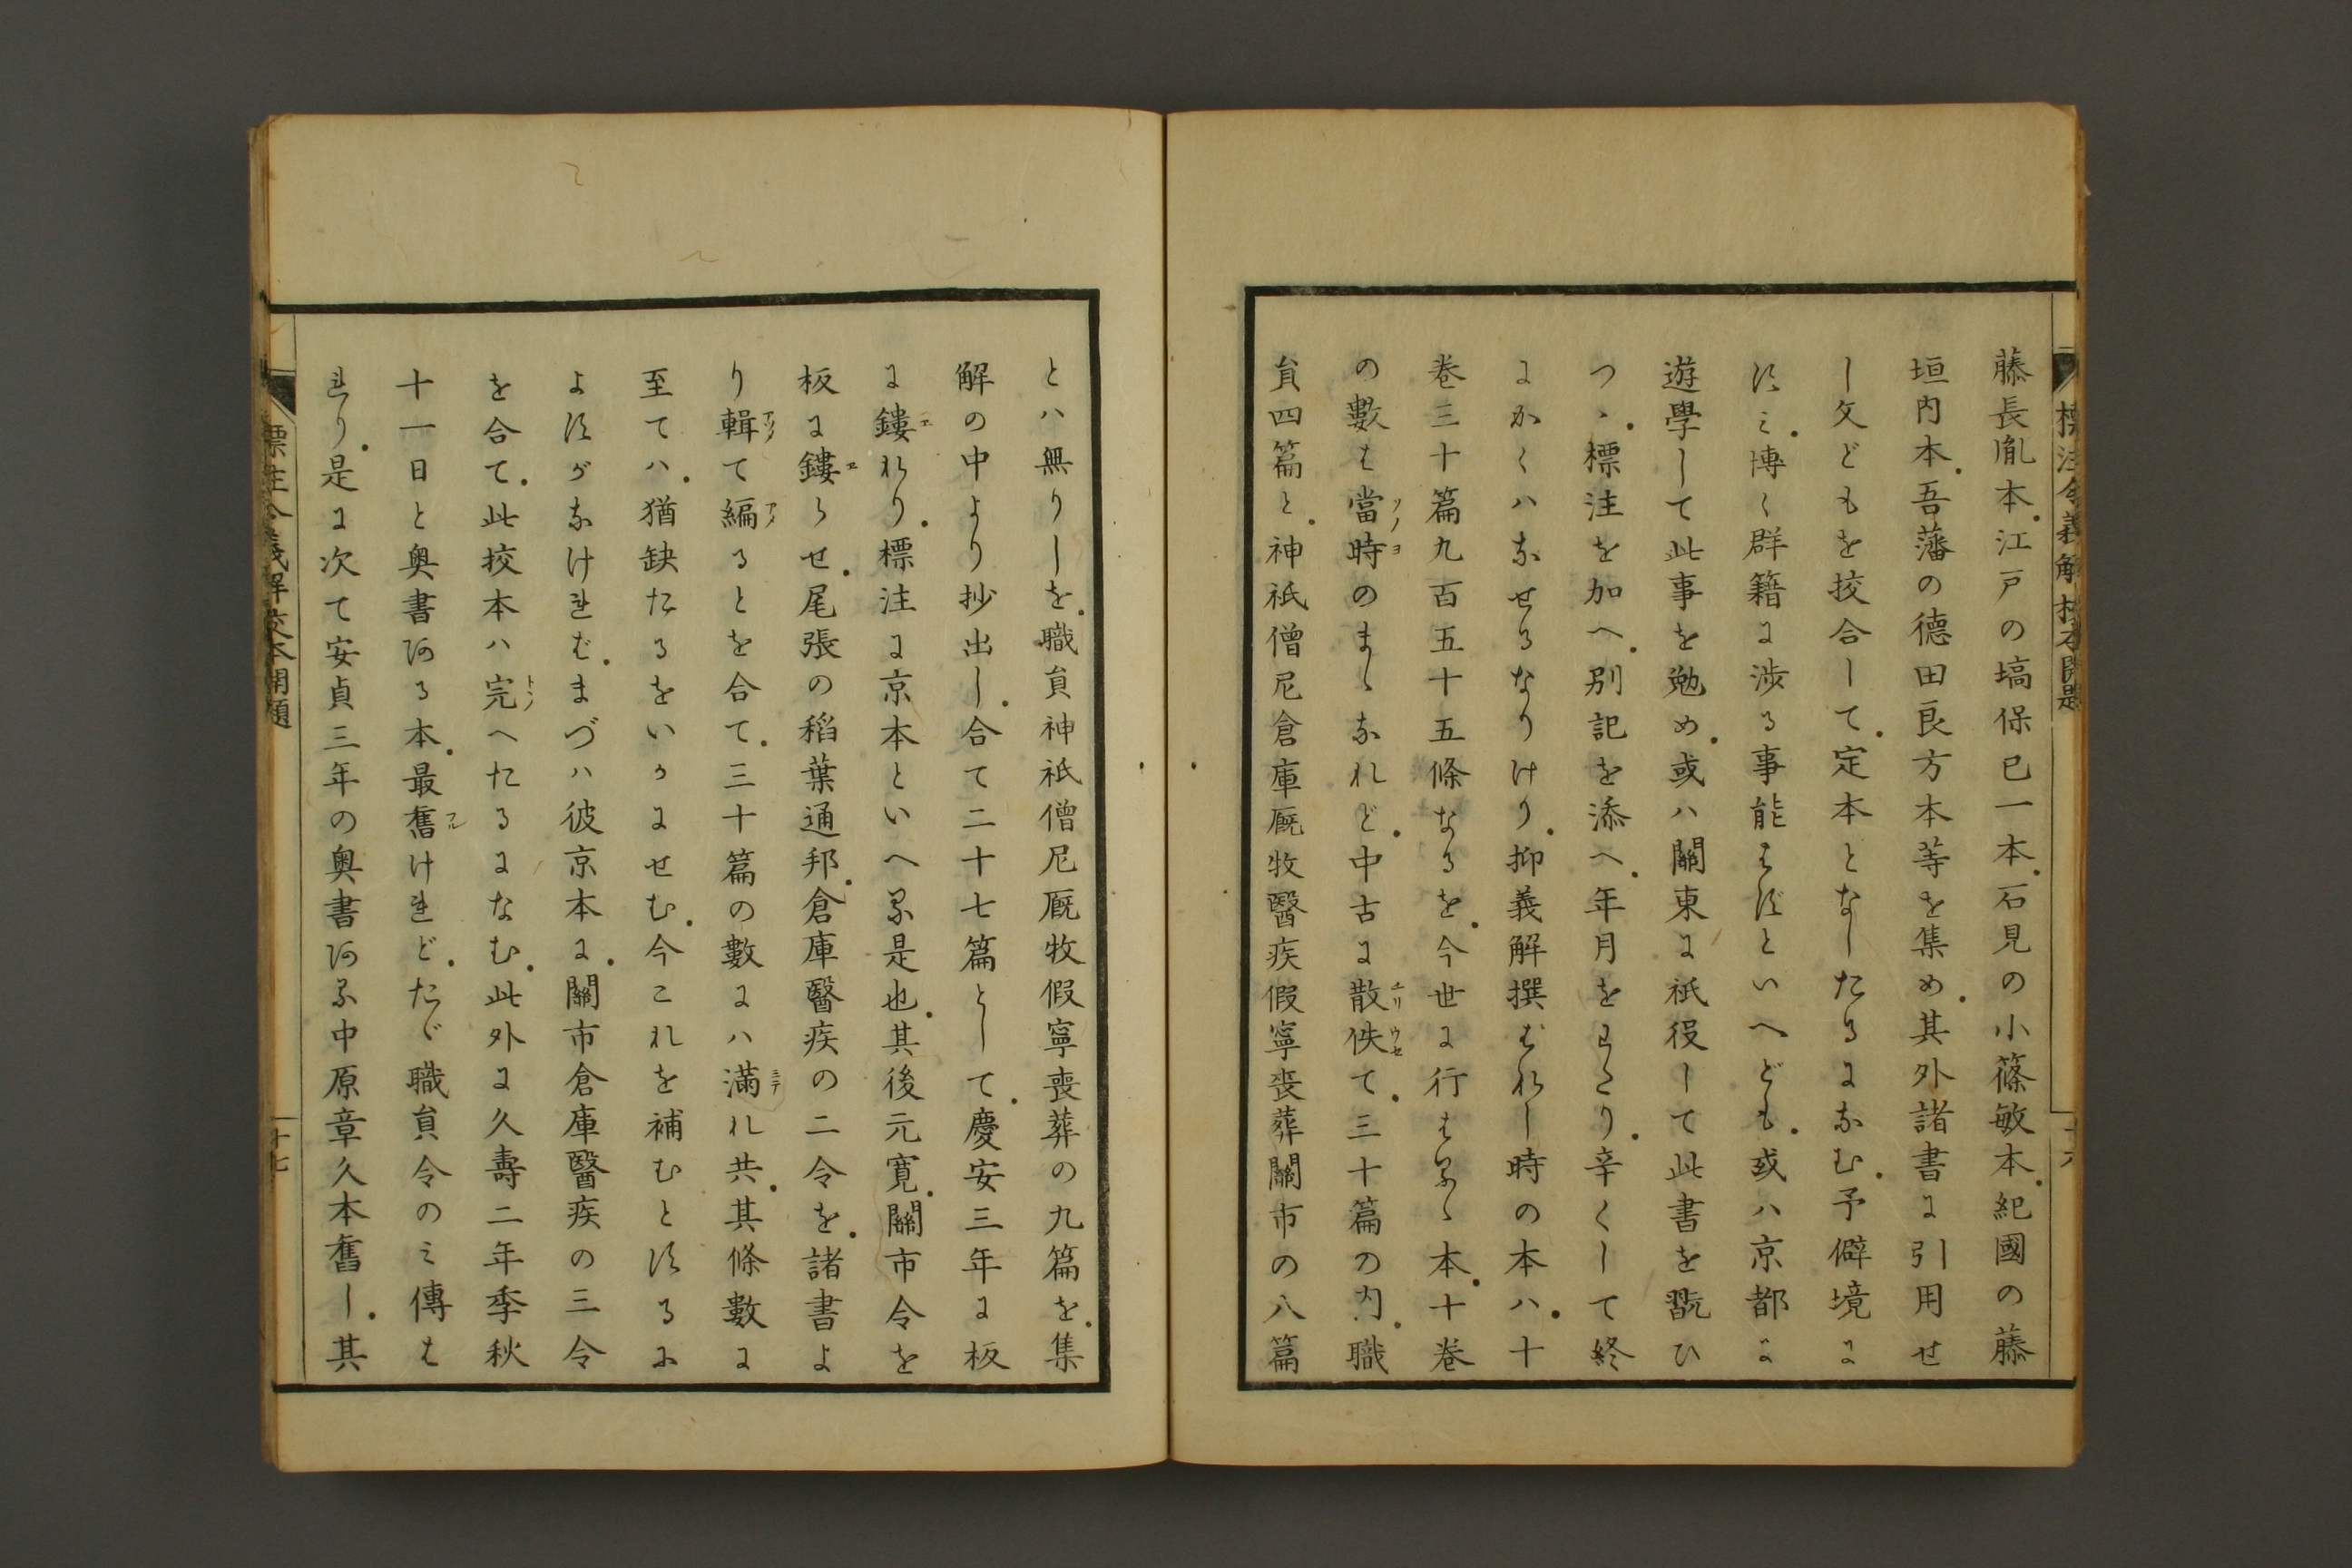 標注令義解挍本開題
十六
藤長胤本。江戸の塙保已一本。石見の小篠敏本。紀國の藤
垣内本。吾藩の徳田良方本等を集め。其外諸書に引用せ
し文どもを挍合して。定本となしたるになむ。予僻境に
住み。博く群籍に渉る事能はずといへども。或ハ京都に
遊學して此事を勉め。或ハ關東に祇役して此書を翫ひ
つゝ。標注を加へ。別記を添へ。年月をわたり。辛くして終
にかくハなせるなりけり。抑義解撰ばれし時の本ハ。十
巻三十篇九百五十五條なるを。今世に行はるゝ本。十巻
の數は當時のまゝなれど。中古に散佚て。三十篇の内。職
貟四篇と。神祇僧尼倉庫厩牧醫疾假寧喪葬關市の八篇
とハ無りしを。職貟神祇僧尼厩牧假寧喪葬の九篇を。集
解の中より抄出し。合て二十七篇として。慶安三年に板
に鏤れり。標注に京本といへる是也。其後元寛。關市令を
板に鏤らせ。尾張の稻葉通邦。倉庫醫疾の二令を。諸書よ
り輯て編ると を合て。三十篇の數にハ滿れ共。其條數に
至てハ。猶缺たるをいかにせむ。今これを補むとするに
よすがなければ。まづハ彼京本に。關市倉庫醫疾の三令
を合て。此挍本ハ完へたるになむ。此外に久壽二年季秋
十一日と奥書ある本。最舊けれど。たゞ職貟令のミ傳は
れり。是に次て安貞三年の奥書ある中原章久本舊し。其
標注令義解挍本開題
十七